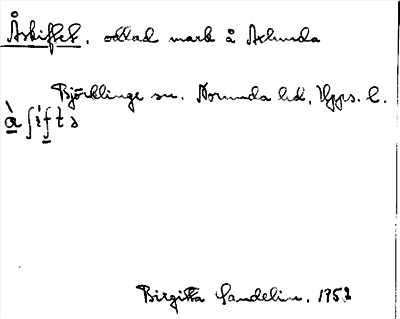 Åskiftet, odlad mark å Axlunda
Björklinge sn. Norunda hd, Upps. l.
à ʃifts
Birgitta Sandelin. 1952